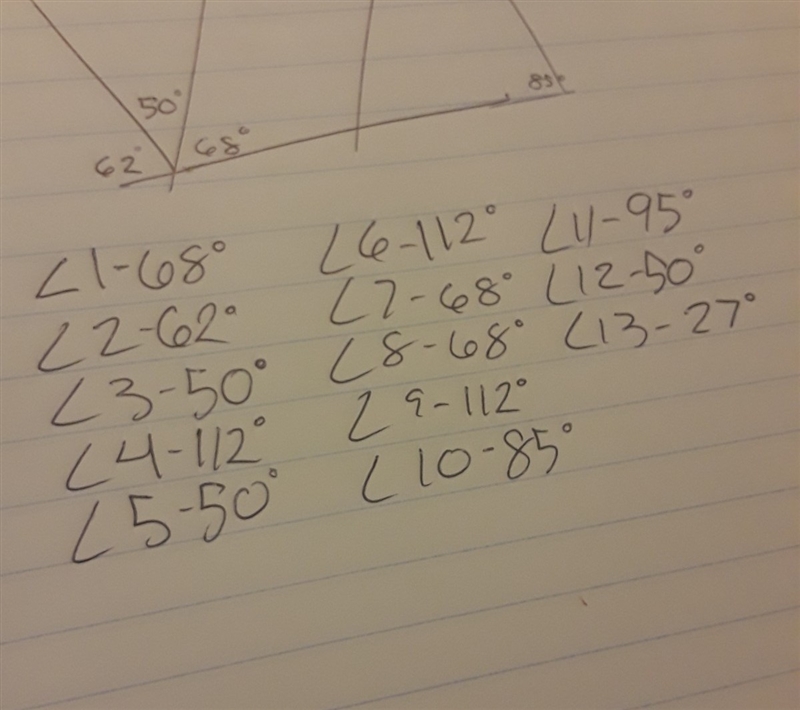 50°
62° 68°
85°
∠1-68°
∠2-62°
∠3-50°
∠4-112°
∠5-50°
∠6-112°
∠7-68°
∠8-68°
∠9-112°
∠10-85°
∠11-95°
∠12-50°
∠13-27°